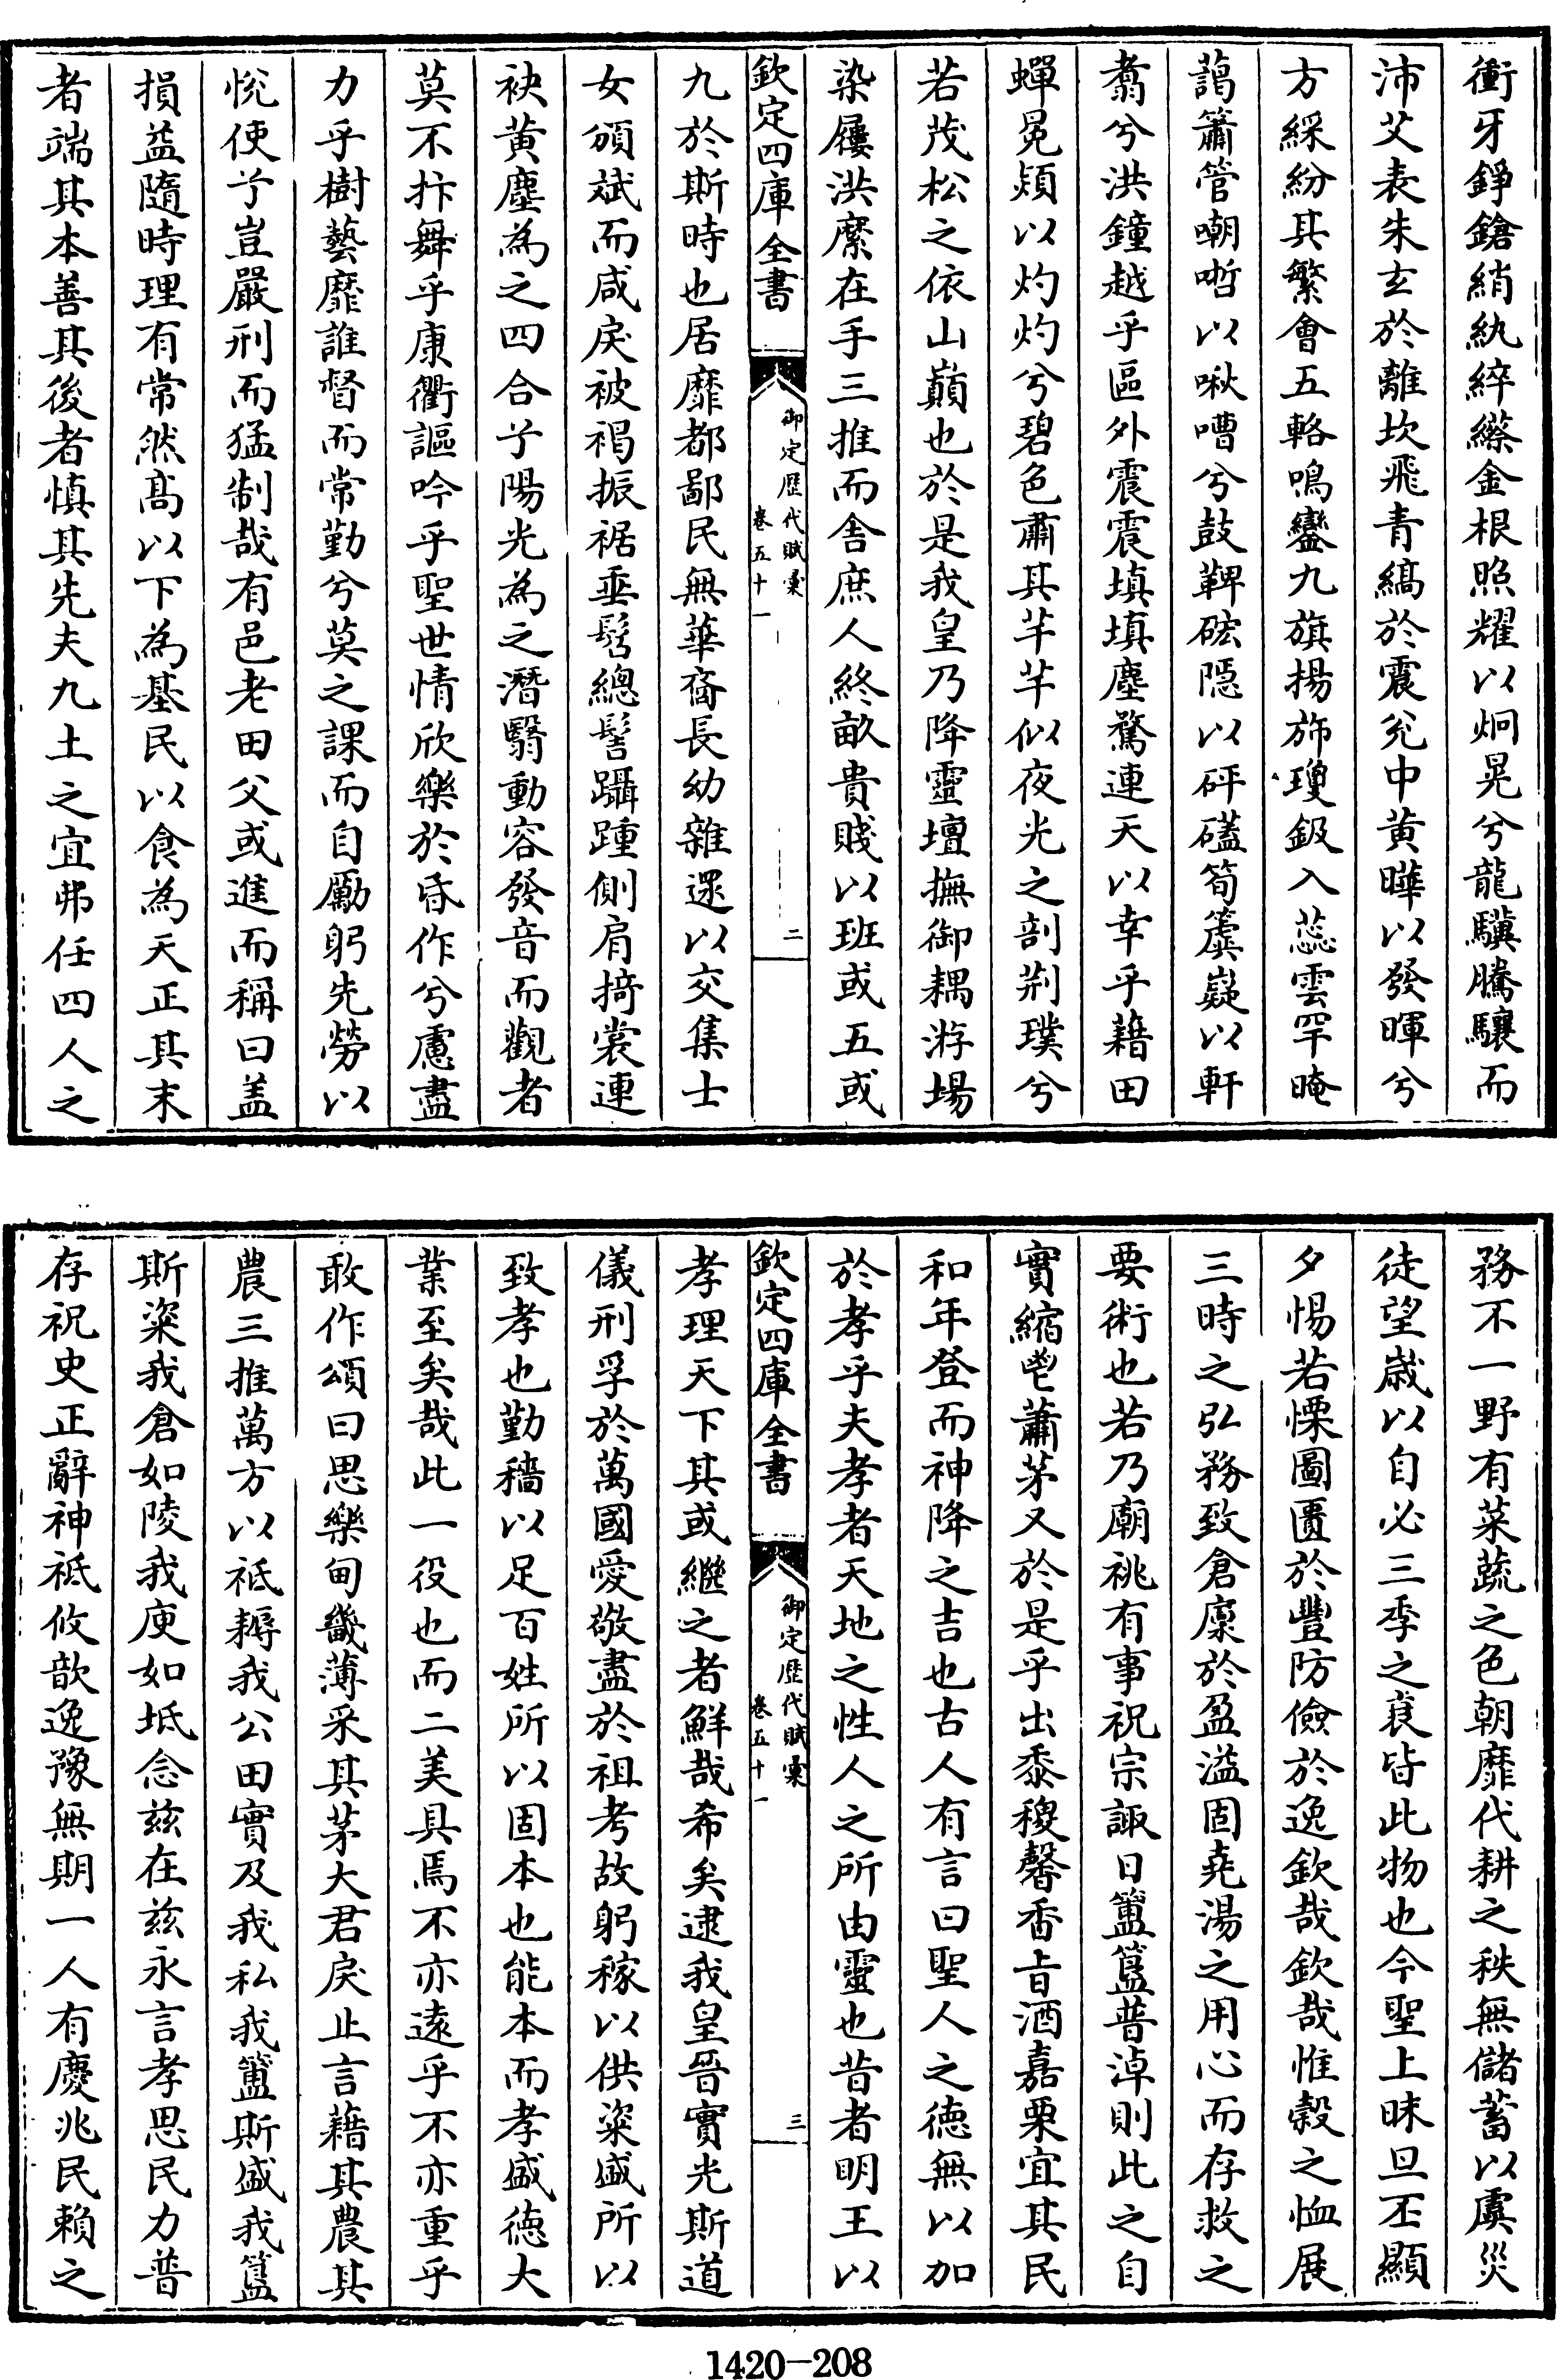 衝牙錚鎗綃紈綷䌨金根照耀以炯晃兮龍驥騰驤而
沛艾表朱玄於離坎飛青縞於震兊中黄曄以發暉兮
方綵紛其繁會五輅鳴鑾九旗揚斾瓊鈒入蕊雲罕晻
藹簫管嘲哳以啾嘈兮鼓鞞硡隱以砰磕筍簴嶷以軒
翥兮洪鐘越乎區外震震填填塵驁連天以幸乎藉田
蟬冕熲以灼灼兮碧色肅其芊芊似夜光之剖荆璞兮
若茂松之依山巔也於是我皇乃降靈壇撫御耦游場
染屨洪縻在手三推而舍庶人終畝貴賤以班或五或
欽定四庫全書
御定歴代賦彙
卷五十一
二
九於斯時也居靡都鄙民無華裔長幼雜遝以交集士
女頒斌而咸戾被褐振裾垂髫總髻躡踵側肩掎裳連
袂黄塵為之四合兮陽光為之潛翳動容發音而觀者
莫不抃舞乎康衢謳吟乎聖世情欣樂於昏作兮慮盡
力乎樹藝靡誰督而常勤兮莫之課而自勵躬先勞以
悦使兮豈嚴刑而猛制哉有邑老田父或進而稱曰盖
損益隨時理有常然髙以下為基民以食為天正其末
者端其本善其後者慎其先夫九土之宜弗任四人之
務不一野有菜蔬之色朝靡代耕之秩無儲蓄以虞災
徒望歲以自必三季之衰皆此物也今聖上昧旦丕顯
夕惕若慄圖匱於豐防儉於逸欽哉欽哉惟榖之恤展
三時之弘務致倉廩於盈溢固堯湯之用心而存救之
要術也若乃廟祧有事祝宗諏日簠簋普淖則此之自
實縮鬯蕭茅又於是乎出黍稷馨香旨酒嘉栗宜其民
和年登而神降之吉也古人有言曰聖人之德無以加
於孝乎夫孝者天地之性人之所由靈也昔者明王以
欽定四庫全書
御定歴代賦彙
卷五十一
三
孝理天下其或繼之者鮮哉希矣逮我皇晉實光斯道
儀刑孚於萬國愛敬盡於祖考故躬稼以供粢盛所以
致孝也勤穡以足百姓所以固本也能本而孝盛德大
業至矣哉此一役也而二美具焉不亦逺乎不亦重乎
敢作頌曰思樂甸畿薄采其茅大君戾止言藉其農其
農三推萬方以祗耨我公田實及我私我簠斯盛我簋
斯粢我倉如陵我庾如坻念兹在兹永言孝思民力普
存祝史正辭神祗攸歆逸豫無期一人有慶兆民賴之
1420－208